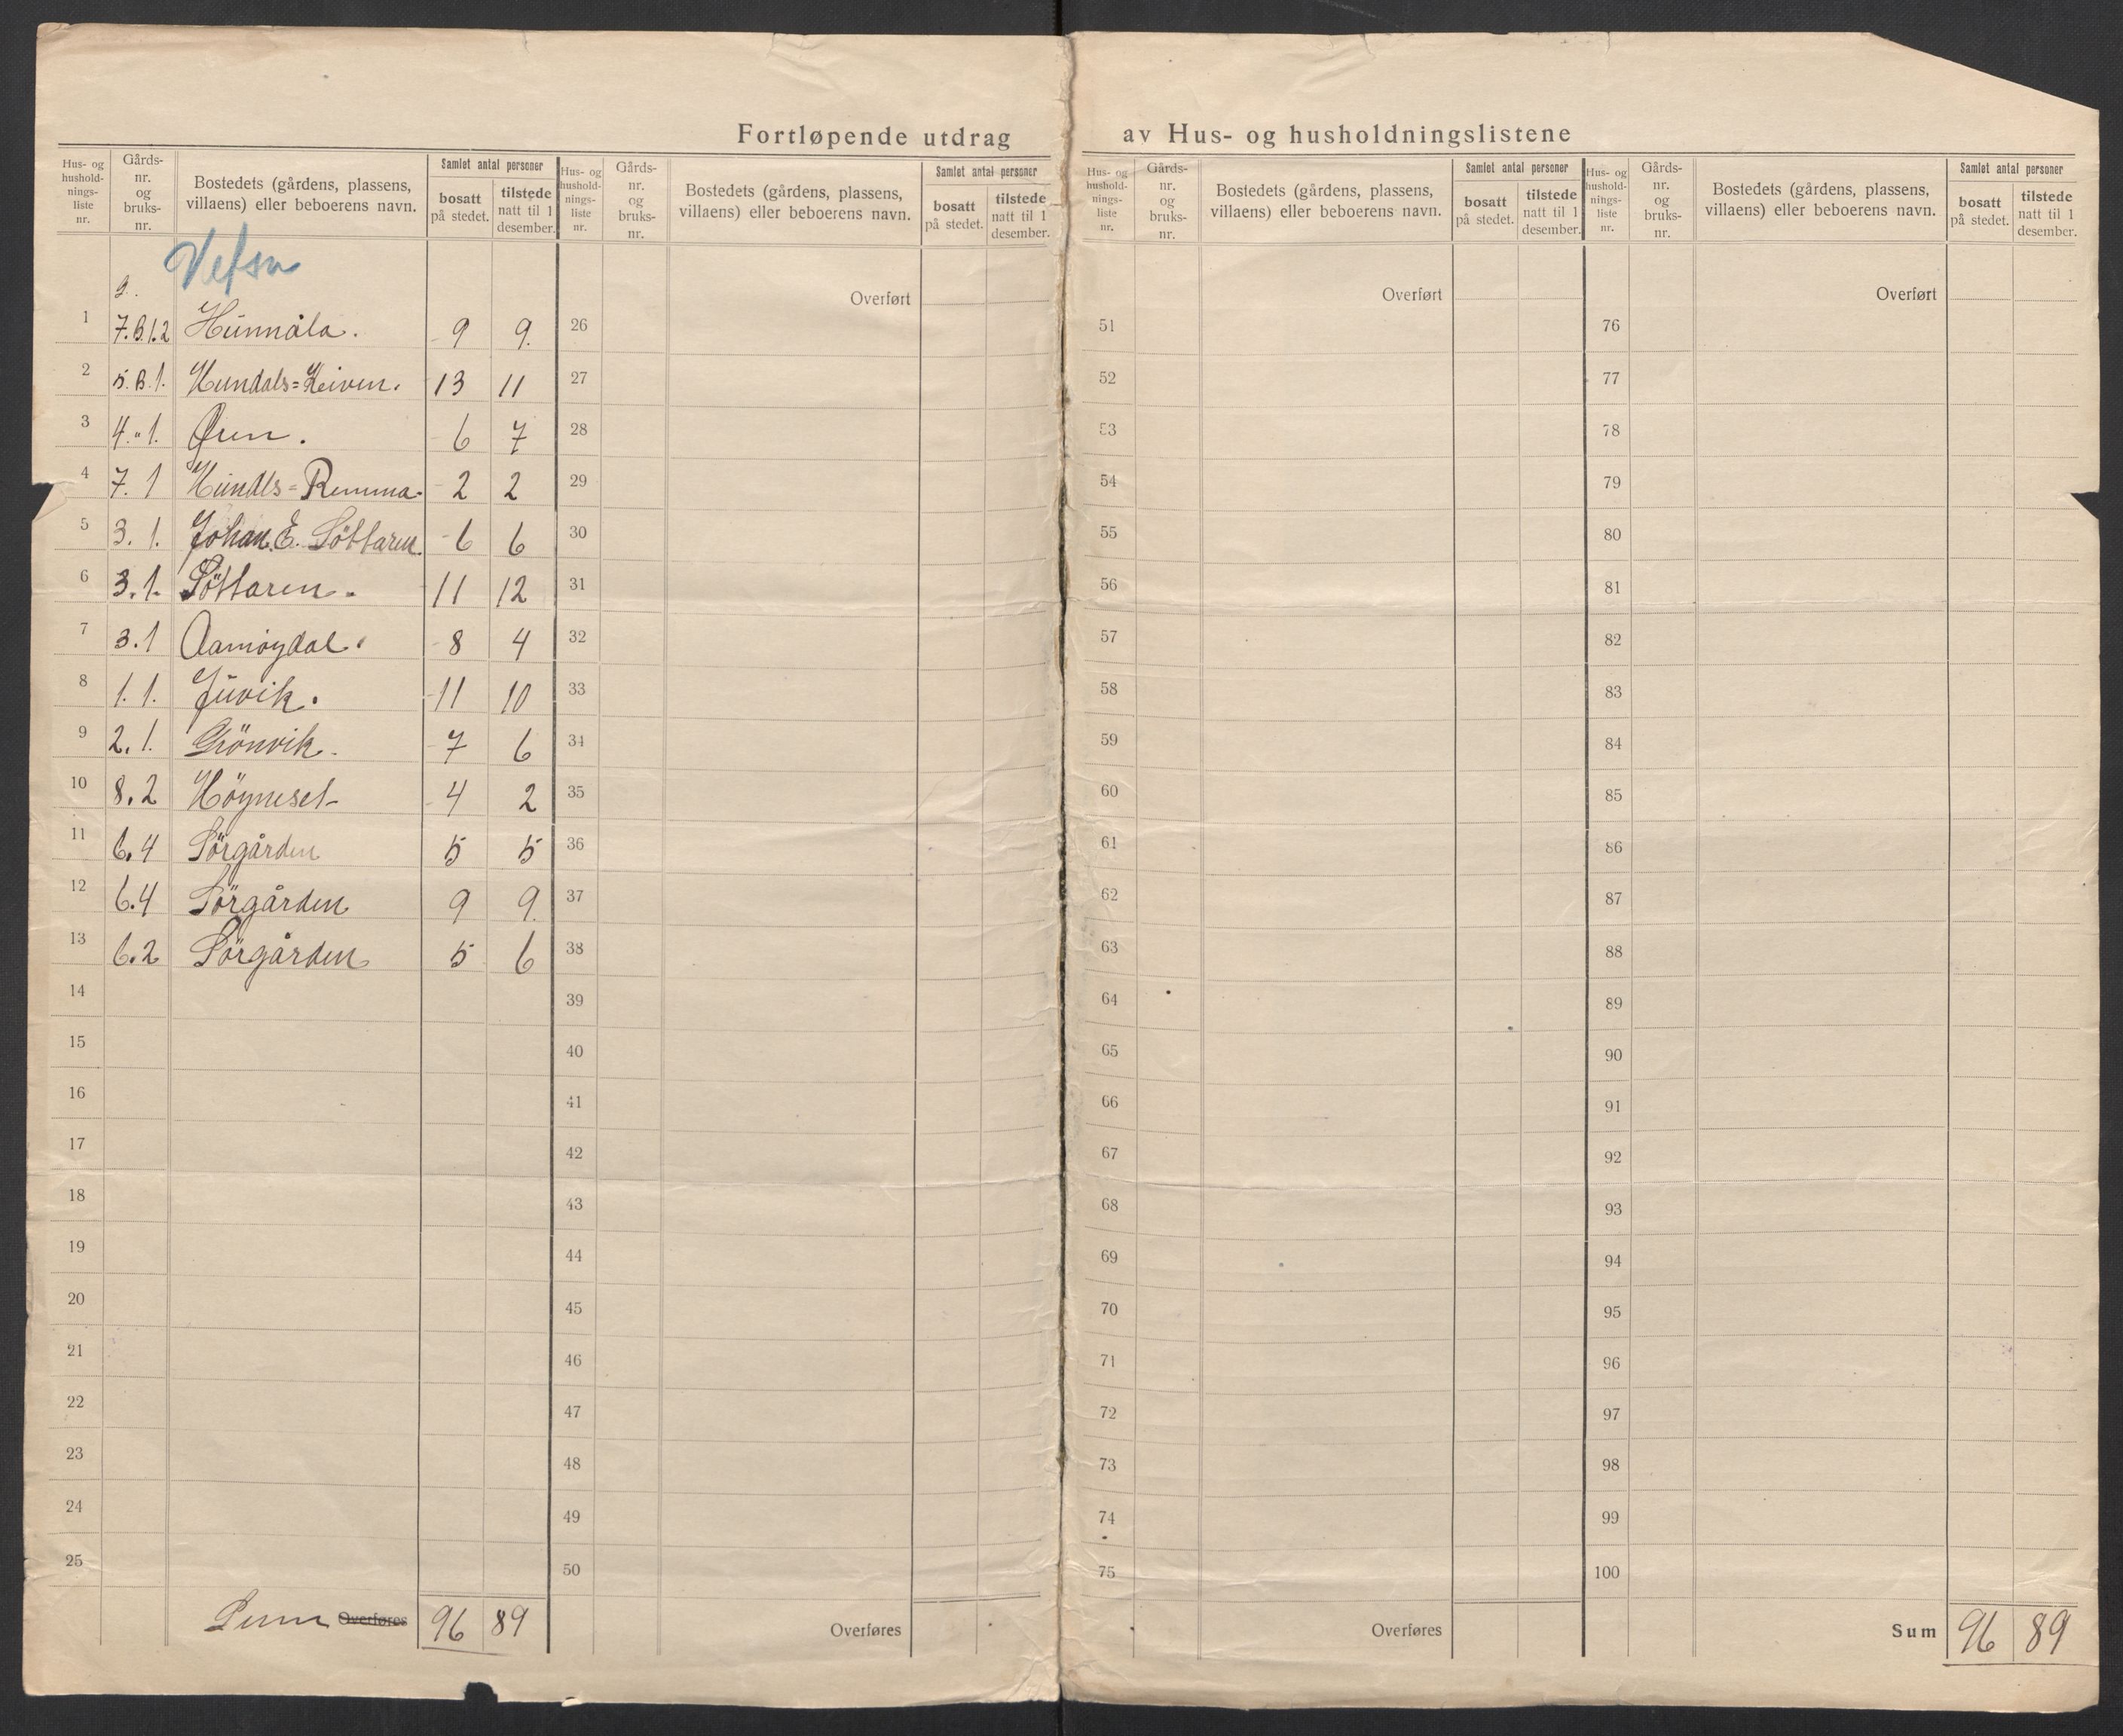 Fortløpende utdrag av Hus- og husholdningslistene
Hus- og hushold-nings-liste nr. | Gårds-nr. og bruks-nr. | Bostedets (gårdens, plassens, villaens) eller beboerens navn. | Samlet antal personer | bosatt på stedet. | tilstede natt til 1 desember.
Hus- og hushold-nings-liste nr. | Gårds-nr. og bruks-nr. | Bostedets (gårdens, plassens, villaens) eller beboerens navn. | Samlet antal personer | bosatt på stedet. | tilstede natt til 1 desember.
Hus- og hushold-nings-liste nr. | Gårds-nr. og bruks-nr. | Bostedets (gårdens, plassens, villaens) eller beboerens navn. | Samlet antal personer | bosatt på stedet. | tilstede natt til 1 desember.
Hus- og hushold-nings-liste nr. | Gårds-nr. og bruks-nr. | Bostedets (gårdens, plassens, villaens) eller beboerens navn. | Samlet antal personer | bosatt på stedet. | tilstede natt til 1 desember.
Vefsn
g.
1 7.B.1.2 Hunnåla. 9 9.
2 5.B.1. Hundals=Keiven. 13 11
3 4.„1. Øren. 6 7
4 7.1 Hundls=Remma. 2 2
5 3.1. Johan E. Söttaren. 6 6
6 3.1. Söttaren. 11 12
7 3.1 Aamøydal. 8 4
8 1.1. Juvik. 11 10
9 2.1. Grönvik. 7 6
10 8.2 Höyneset 4 2
11 6.4 Sörgården 5 5
12 6.4 Sörgården 9 9.
13 6.2 Sörgården 5 6
14
15
16
17
18
19
20
21
22
23
24
25
Sum Overføres 96 89
Overført
26
27
28
29
30
31
32
33
34
35
36
37
38
39
40
41
42
43
44
45
46
47
48
49
50
Overføres
Overført
51
52
53
54
55
56
57
58
59
60
61
62
63
64
65
66
67
68
69
70
71
72
73
74
75
Overføres
Overført
76
77
78
79
80
81
82
83
84
85
86
87
88
89
90
91
92
93
94
95
96
97
98
99
100
Sum 96 89